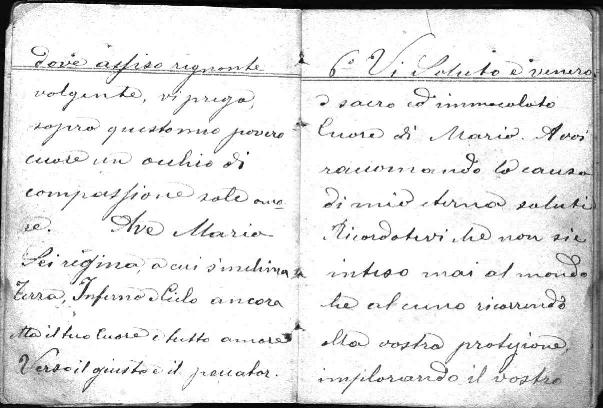 dove assiso regnante
volgente, vi priega,
sopra questo mio povero
cuore un occhio di
compassione sole amo
re. Ave Maria
Sei regina, a cui s'inchina
Terra, Inferno e Cielo ancora
Ma il tuo Cuore e tutto amore
Verso il giusto e il peccator.
6º Vi Saluto e venero
o sacro ed immacolato
Cuore di Maria. A voi
raccomando la causa
di mia eterna salute
Ricordatevi che non sie
inteso mai al mondo
che alcuno ricorrendo
alla vostra protezione,
implorando il vostro